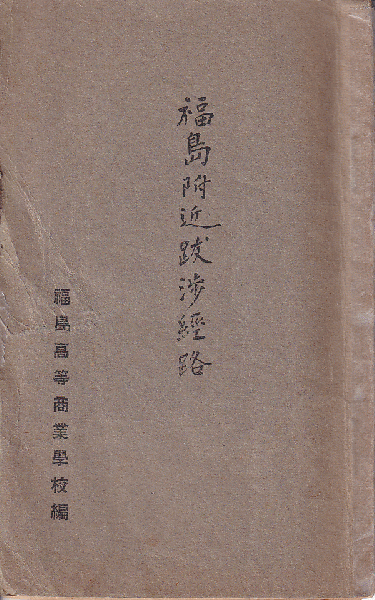 福島附近跋渉經路
福島高等商業學校編